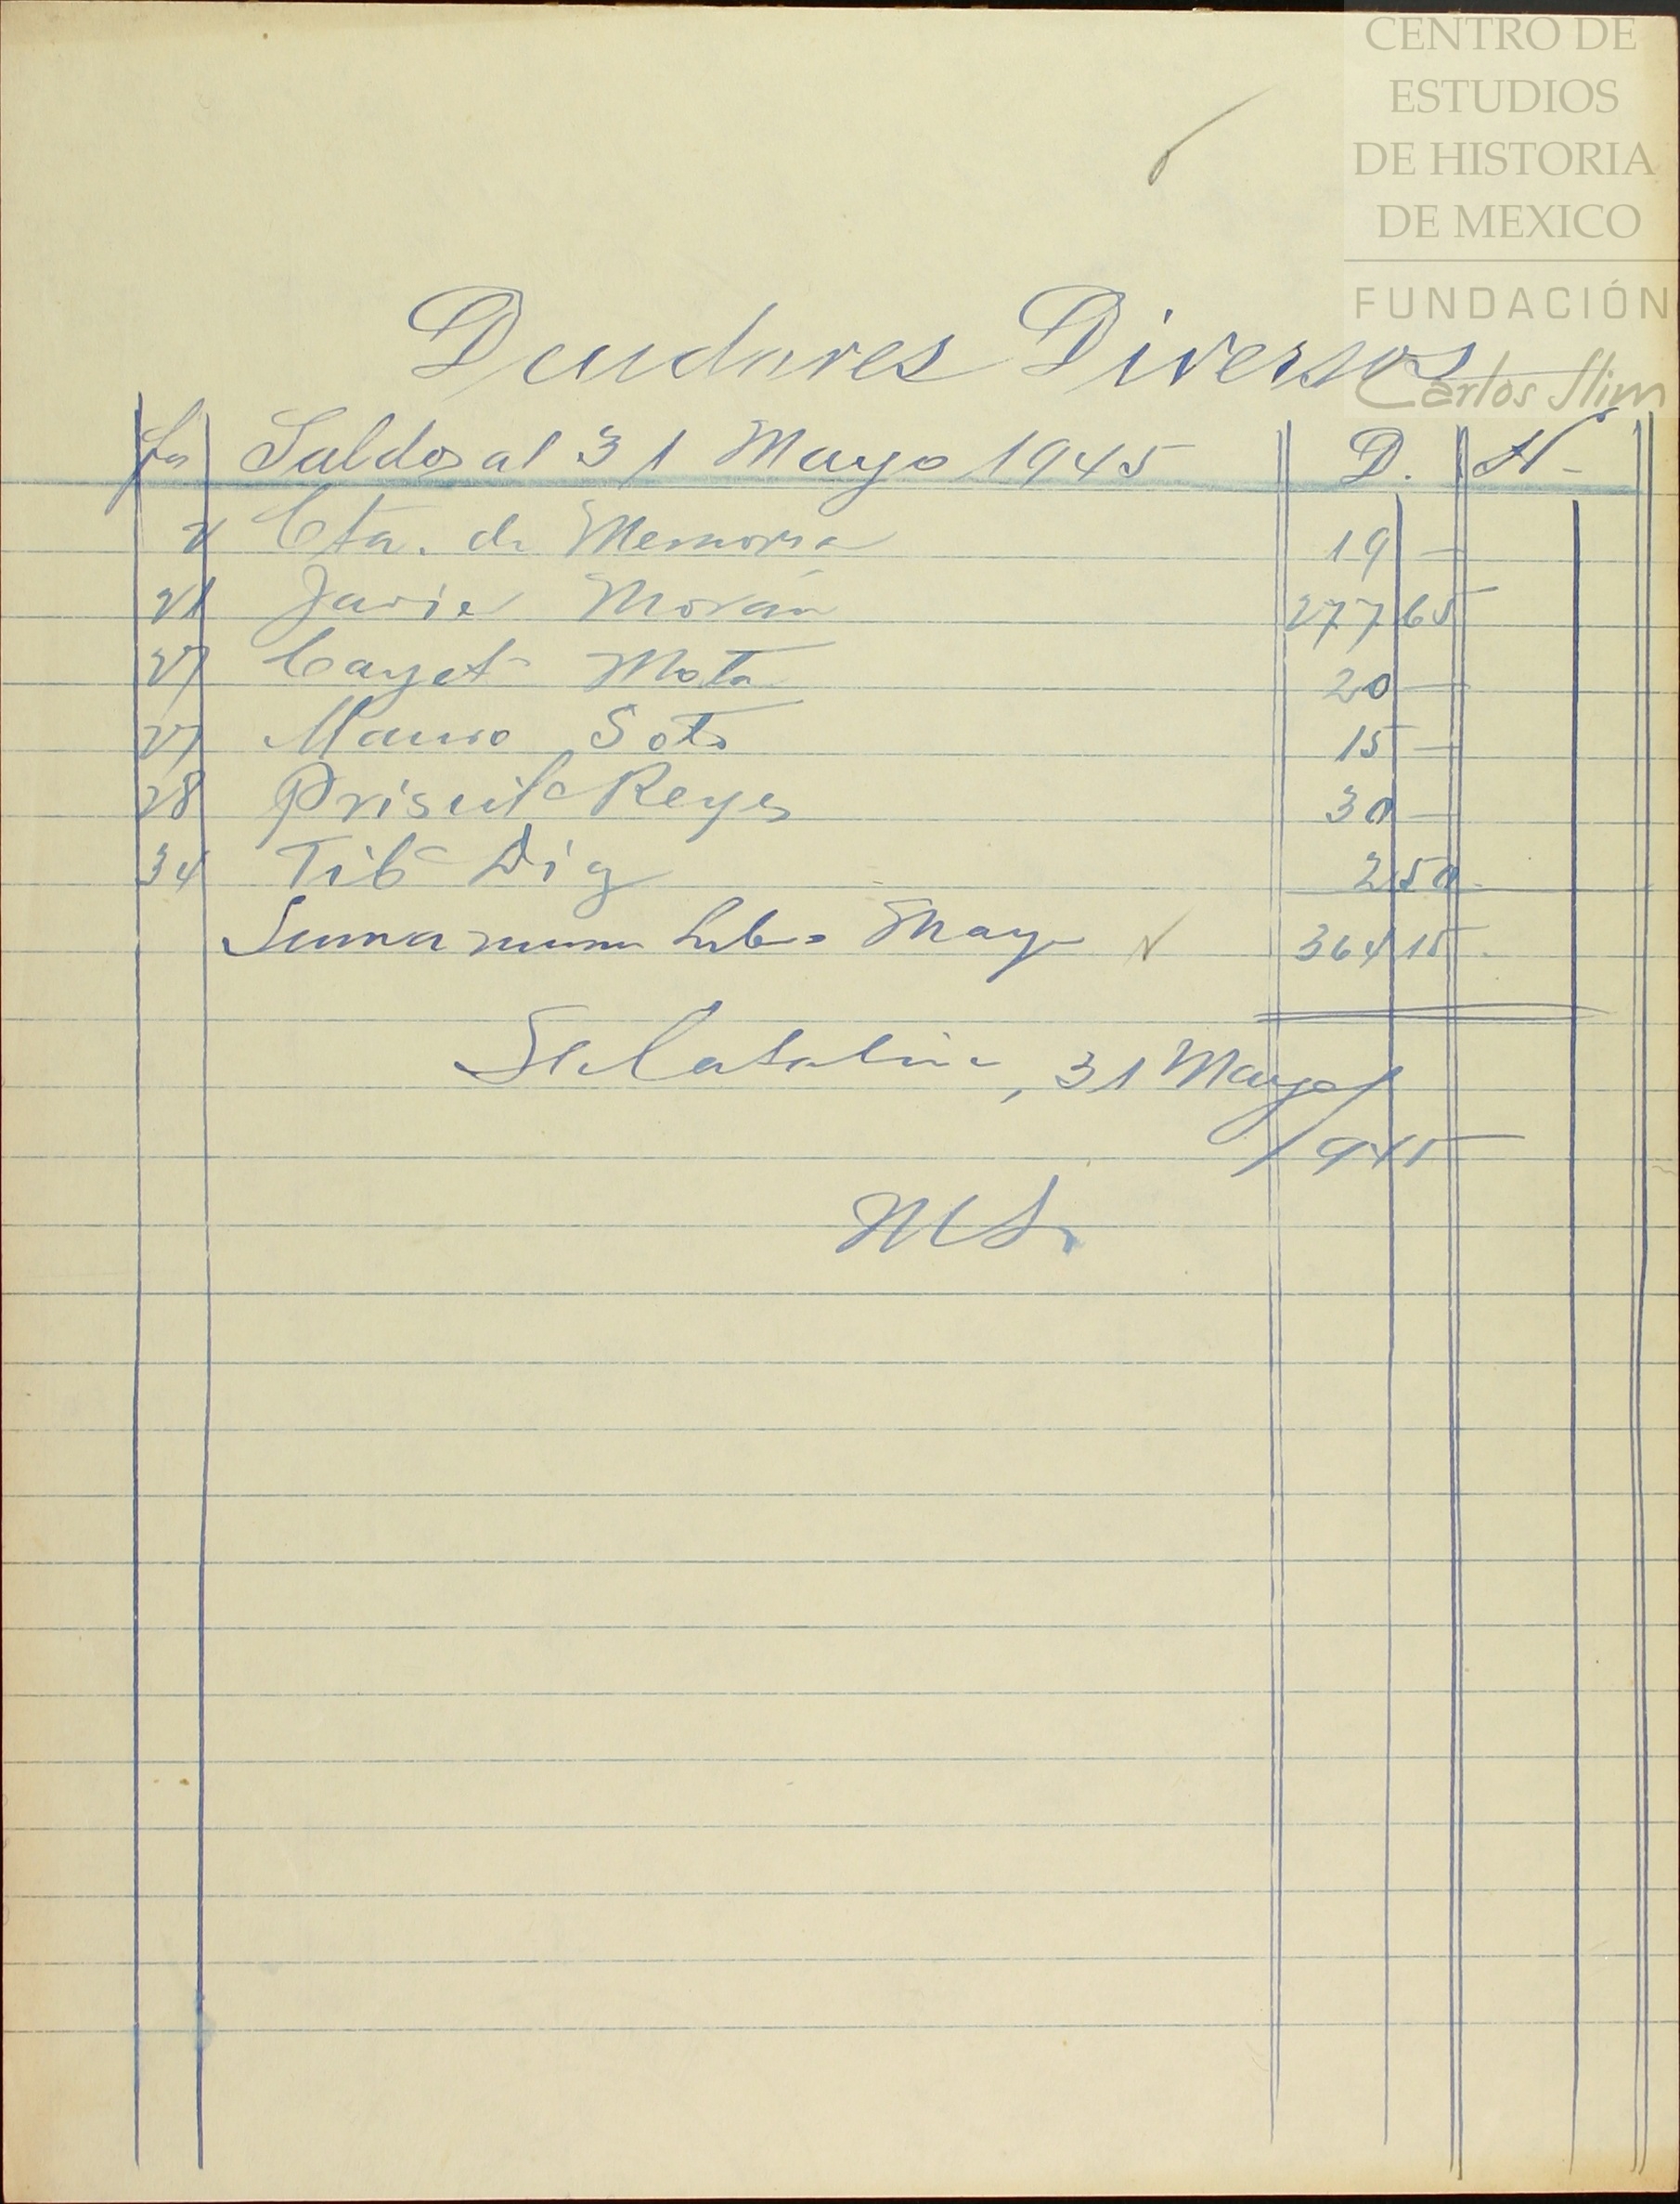 CENTRO DE
ESTUDIOS
DE HISTORIA
DE MEXICO
FUNDACIÓN
Carlos Slim
Deudores Diversos
Fs Saldos al 31 Mayo 1945 D. H.
2 Cta. de Memoria 19 —
21 Javier Morán 277 65
27 Cayet Mota 20 —
27 Mauro Soto 15 —
28 Priscil Reyes 30 —
34 Tib 2 50
Suma Mayo 364 15
Sta Catalina, 31 Mayo/
1945